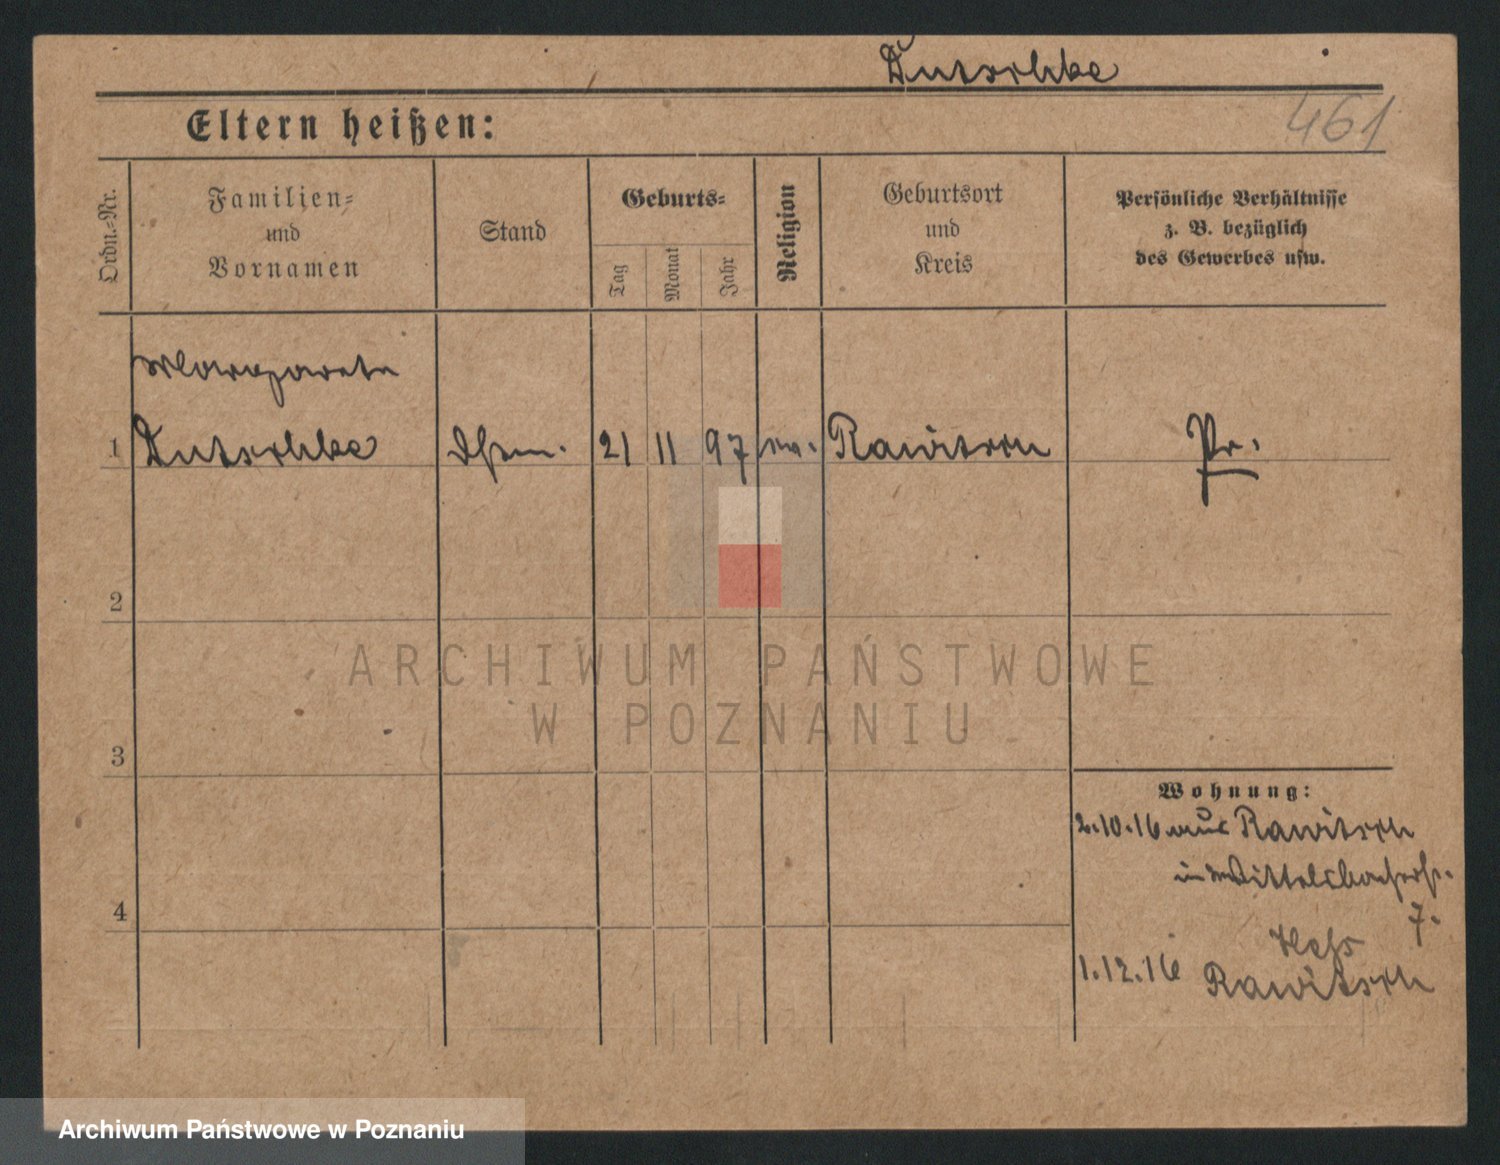 Dutschke
461
Eltern heißen:
Ordn.-Nr.
Familien-
und
Vornamen
Stand
Geburts-
Tag
Monat
Jahr
Religion
Geburtsort
und
Kreis
Persönliche Verhältnisse
z. B. bezüglich
des Gewerbes usw.
Margarete
1 Dutschke 21 11 97 ev. Rawitsch Pr.
2
ARCHIWUM PAŃSTWOWE
W POZNANIU
3
Wohnung:
2.10.16 aus Rawitsch
Wittelsbacherst.
7.
4
Heß
1.12.16 Rawitsch
Archiwum Państwowe w Poznaniu